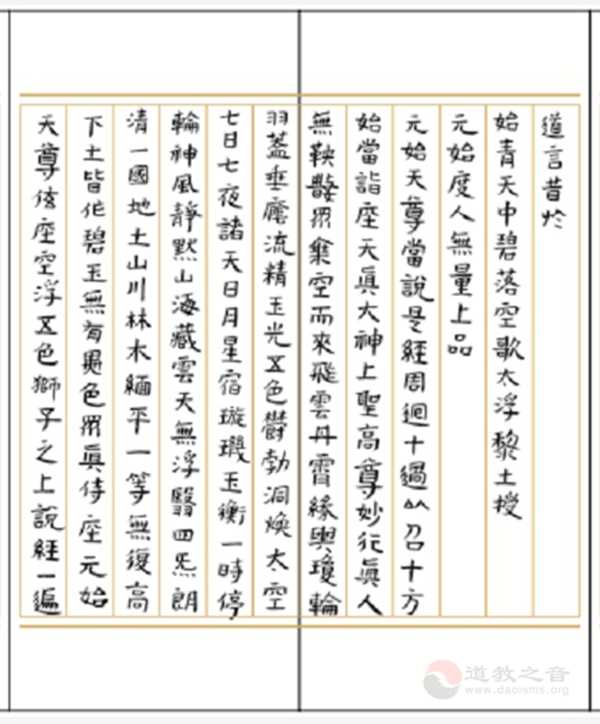 道言昔於
始青天中碧落空歌大浮黎土授
元始度人無量上品
元始天尊當說是經周迴十過以召十方
始當詣座天眞大神上聖高尊妙行眞人
無鞅數眾乘空而來飛雲丹霄緑輿瓊輪
羽蓋垂廕流精玉光五色鬱勃洞煥太空
七日七夜諸天日月星宿璇璣玉衡一時停
輪神風靜默山海藏雲天無浮翳四炁朗
清一國地土山川林木緬平一等無復高
下土皆作碧玉無有異色眾眞侍座元始
天尊懸座空浮五色獅子之上說經一遍
道教之音
www.daoisms.org